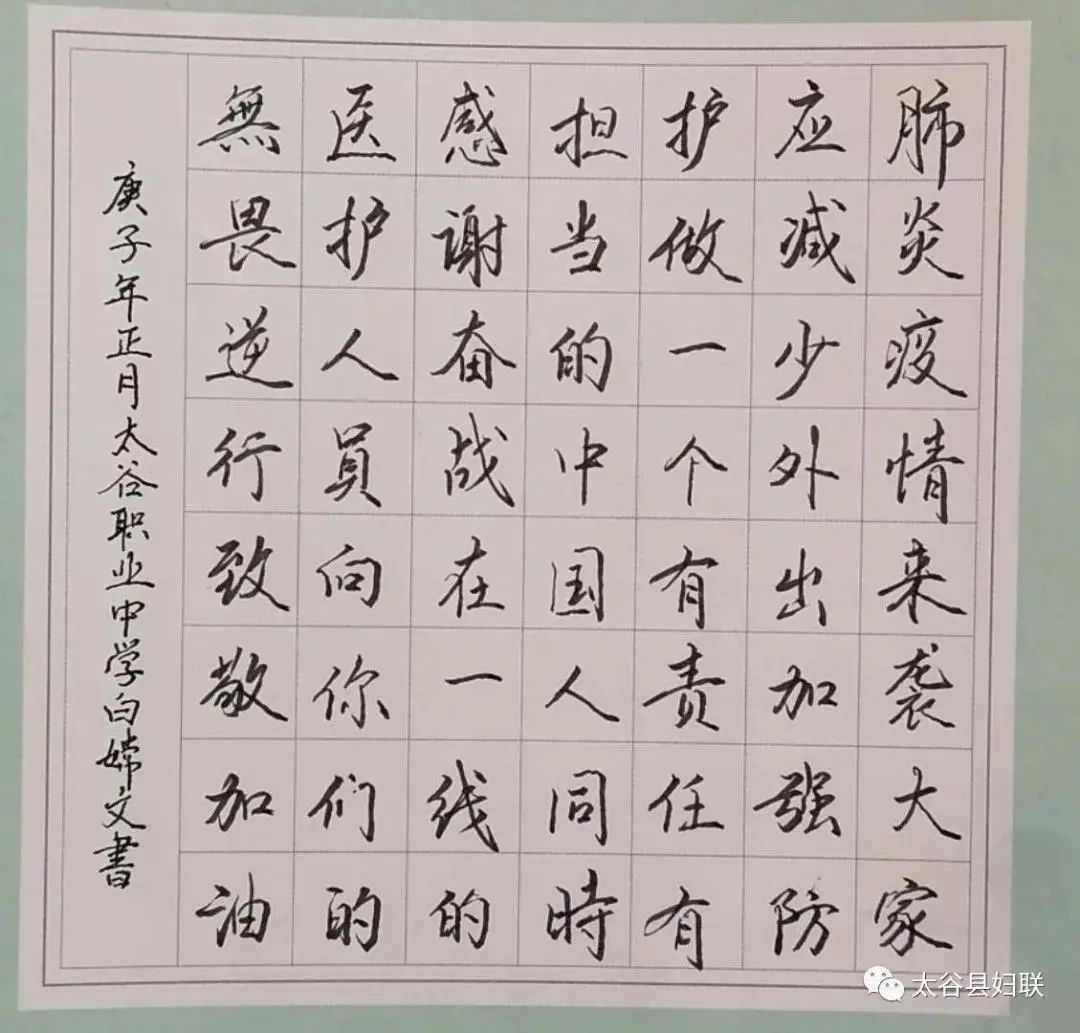 肺炎疫情来袭大家
应减少外出加强防
护做一个有责任有
担当的中国人同時
感谢奋战在一线的
医护人員向你们的
無畏逆行致敬加油
庚子年正月太谷职业中学白嫦文書
太谷县妇联